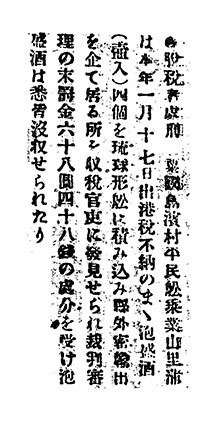 ●脱税者處罰 粟國島濱村平民舩乘業山里蒲
は本年一月十七日出港税不納のまゝ泡盛酒
(壺入)四個を琉球形舩に積み込み縣外密輸出
を企て居る所を収税官吏に發見せられ裁判審
理の末罸金六十八圓四十八錢の處分を受け泡
盛酒は悉皆沒収せられたり